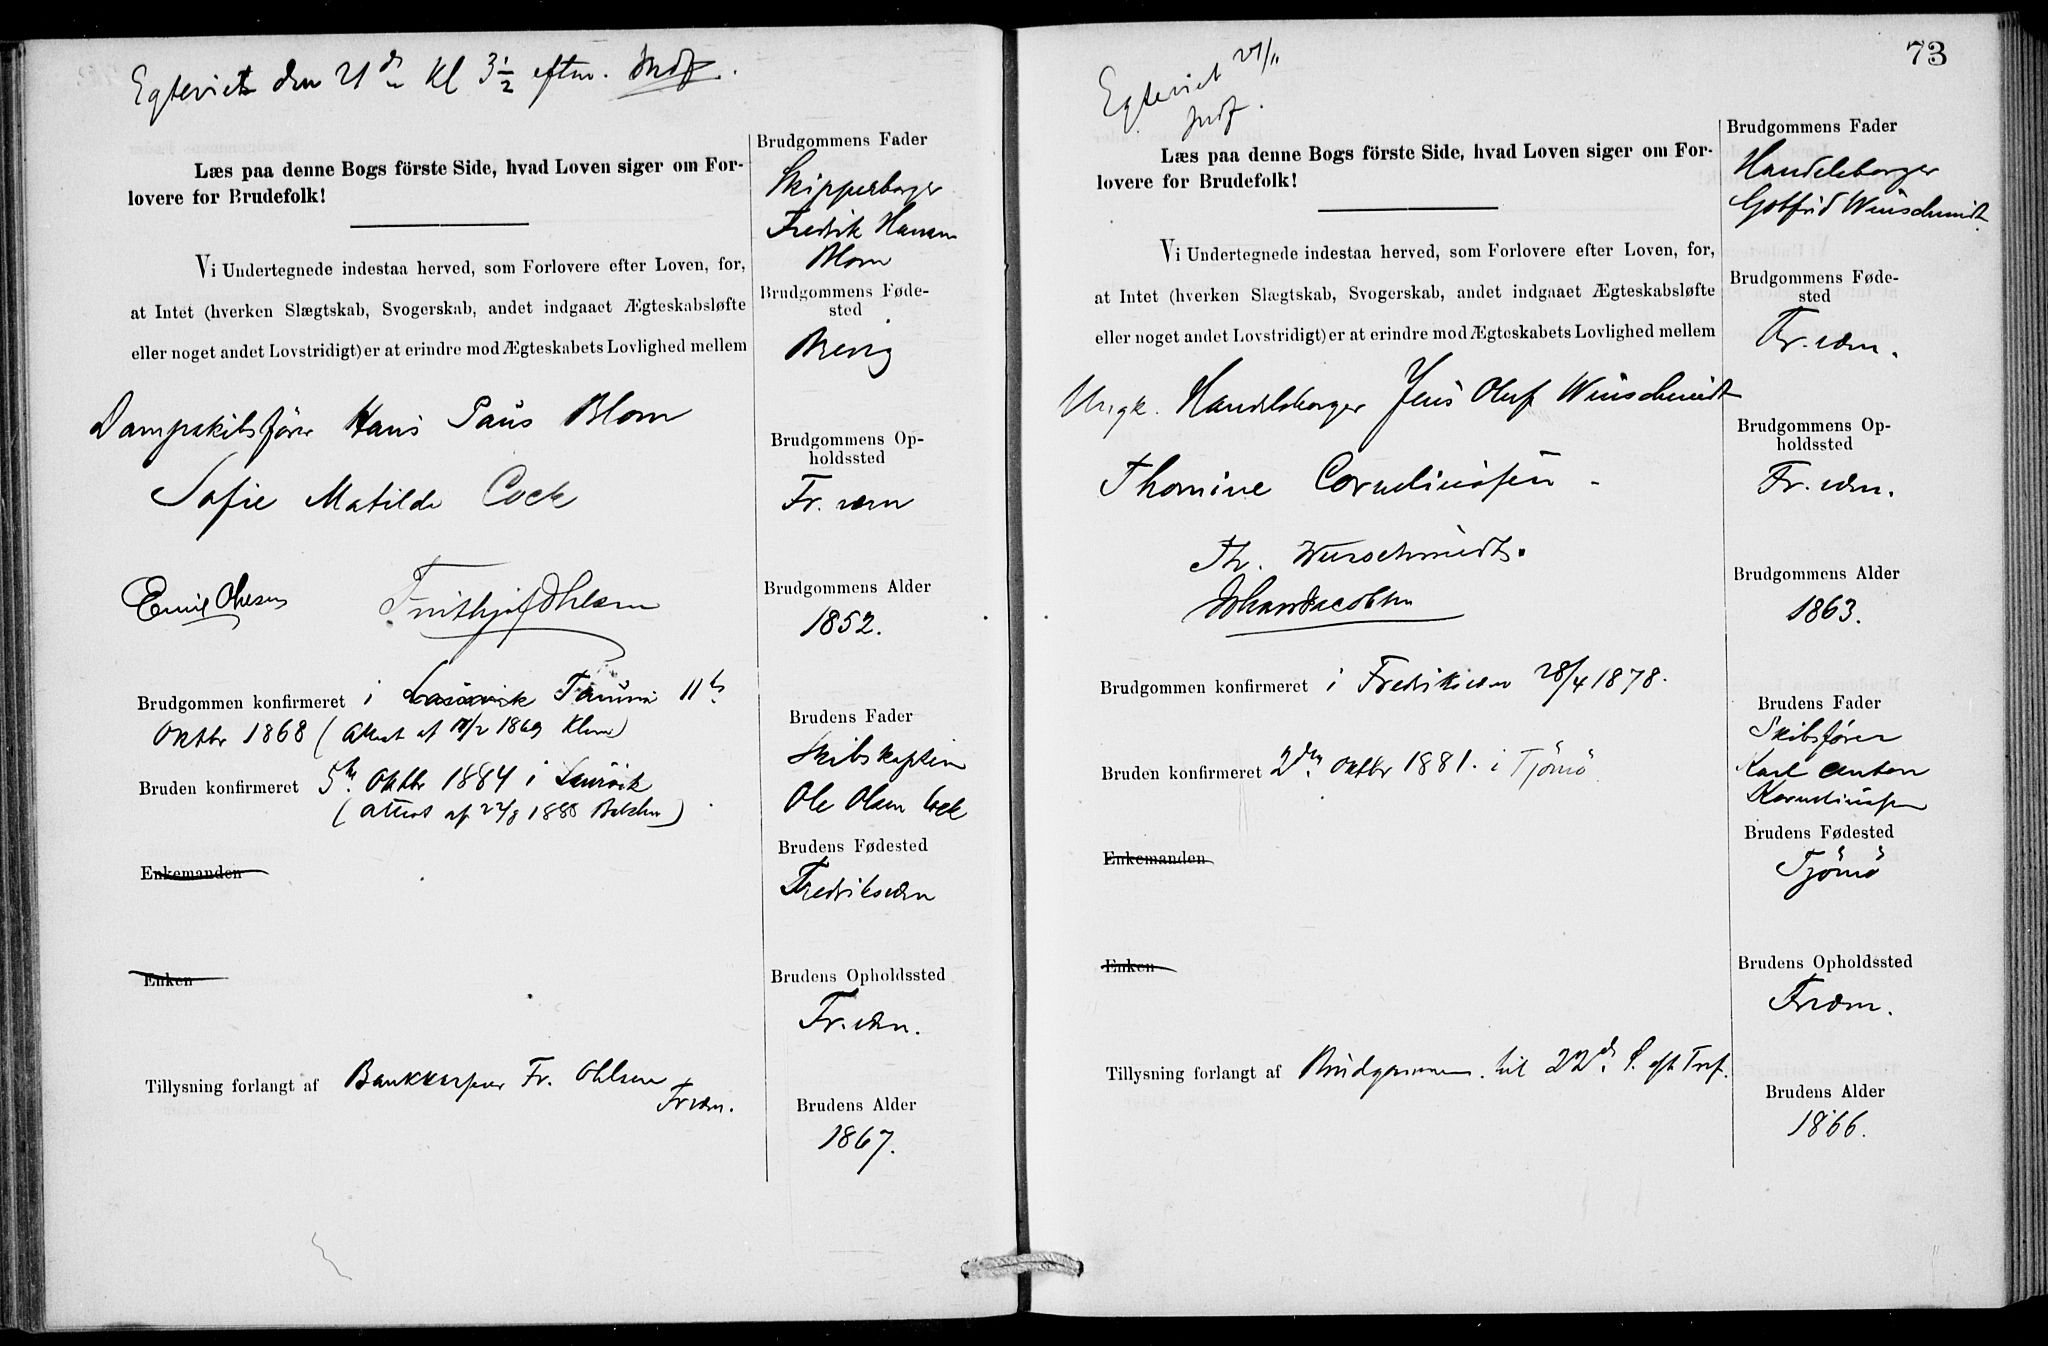 Egteviet den 21de Kl 3 1/2 efterm. Indf.
Læs paa denne Bogs förste Side, hvad Loven siger om For-
lovere for Brudefolk!
Vi Undertegnede indestaa herved, som Forlovere efter Loven, for,
at Intet (hverken Slægtskab, Svogerskab, andet indgaaet Ægteskabsløfte
eller noget andet Lovstridigt) er at erindre mod Ægteskabets Lovlighed mellem
Dampskibsfører Hans Paus Blom
Sofie Matilde Cock
Emil Ohlsen Frithjof Ohlsen
Brudgommen konfirmeret i Laurvik 11te
Oktbr 1868 (Attest af 1869
Bruden konfirmeret 5te Oktbr 1884 i Laurvik
(Attest af 22/8 1888
Enkemanden
Enken
Tillysning forlangt af Bankkasserer Fr. Ohlsen
Frværn.
Brudgommens Fader
Skipperborger
Fredrik Hansen
Blom
Brudgommens Føde-
sted
Brevig
Brudgommens Op-
holdssted
Fr. værn
Brudgommens Alder
1852.
Brudens Fader
Skibskaptein
Ole Olsen Cock
Brudens Fødested
Fredriksværn
Brudens Opholdssted
Fr. værn.
Brudens Alder
1867.
73
Egteviet 21/11
Indf.
Læs paa denne Bogs förste Side, hvad Loven siger om For-
lovere for Brudefolk!
Vi Undertegnede indestaa herved, som Forlovere efter Loven, for,
at Intet (hverken Slægtskab, Svogerskab, andet indgaaet Ægteskabsløfte
eller noget andet Lovstridigt) er at erindre mod Ægteskabets Lovlighed mellem
Ungk. Handelsborger Jens Oluf Wurschmidt
Thomine Corneliussen
Th. Wurschmidt.
Johan Jacobsen
Brudgommen konfirmeret i Fredriksværn 28/4 1878.
Bruden konfirmeret 2den Oktbr 1881. i Tjömö
Enkemanden
Enken
Tillysning forlangt af Brudgommen. til 22de S. eft Tref.
Brudgommens Fader
Handelsborger
Gotfrid Wurschmidt
Brudgommens Føde-
sted
Fr. værn.
Brudgommens Op-
holdssted
Fr. værn.
Brudgommens Alder
1863.
Brudens Fader
Skibsfører
Karl Anton
Korneliussen
Brudens Fødested
Tjömö
Brudens Opholdssted
Frværn.
Brudens Alder
1866.